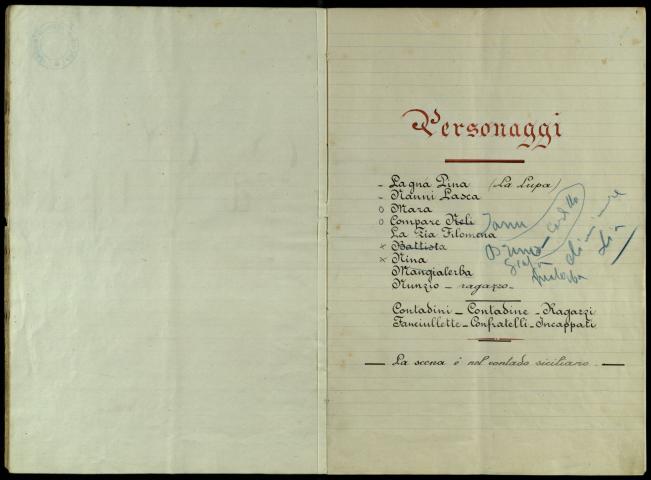 Personaggi
- La gnà Pina (La Lupa)
- Nanni Lasca
o Mara
o Compare Neli
La Zia Filomena
x Battista
x Nina
Mangialerba
Nunzio - ragazzo -
Contadini - Contadine - Ragazzi
Fanciullette - Confratelli - Incappati
La scena è nel contado siciliano -
Janu
Bruno